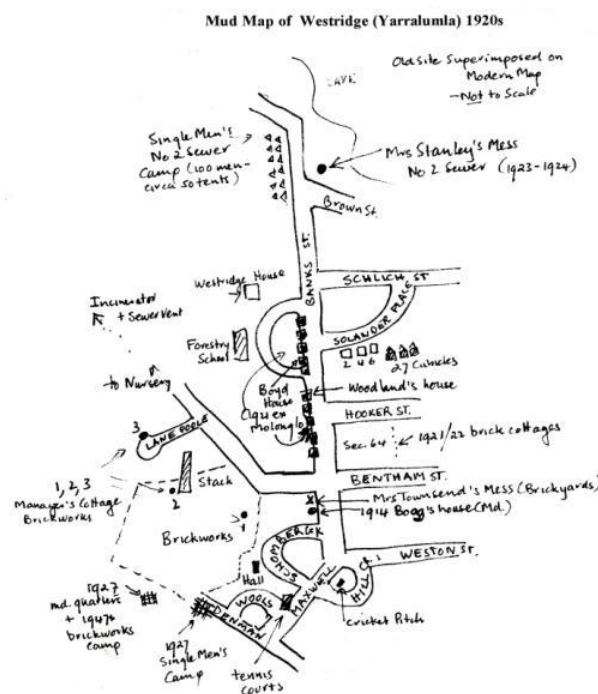 Mud Map of Westridge (Yarralumla) 1920s
Old Site Superimposed on
Modern Map
- Not to Scale
LAKE
Single Men's
No 2 Sewer
Camp (100 men -
circa 50 tents)
Mrs Stanley's Mess
No 2 Sewer (1923-1924)
Brown St.
BANKS ST.
SCHLICH ST
SOLANDER PLACE
Westridge House
Incinerator
+ Sewer Vent
Forestry
School
2 4 6
27 Cubicles
to Nursery
Boyd
House
(1921 ex
Molonglo)
Woodland's house
HOOKER ST.
Sec. 64
1921/22 brick cottages
3
LANE POOLE
BENTHAM ST.
1, 2, 3
Manager's Cottage
Brickworks
2
Stack
x Mrs Townsend's Mess (Brickyards)
1914 Bogg's house (Md.)
1
Brickworks
SCHOMBERGEK
WESTON ST.
Hall
MAXWELL
HILL C.
1927
md. quarters
+ 1947s
brickworks
camp
WOOLS
DENMAN
cricket Pitch
1927
Single Men's
Camp
tennis
courts